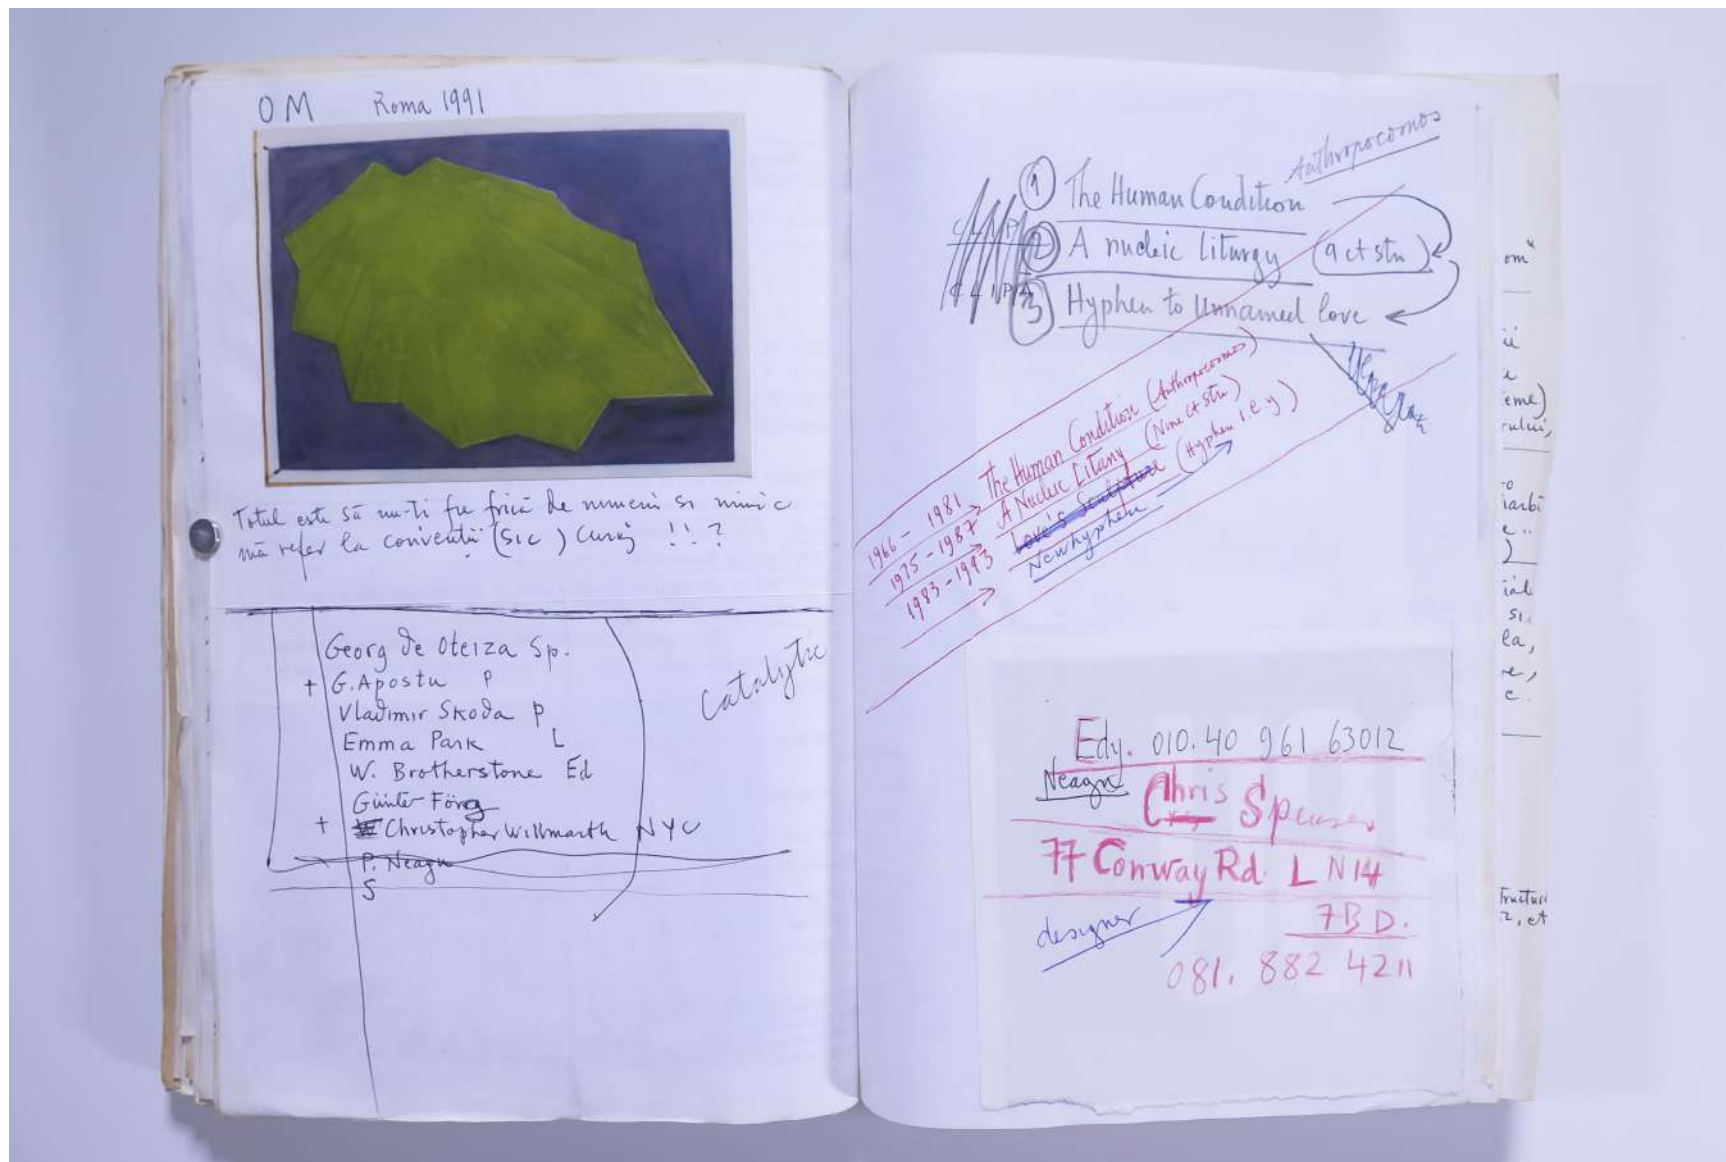 OM Roma 1991
Totul este să nu-ți fie frică de nimeni si nimic
mă refer la convenții (sic) curaj !!?
Georg de Oteiza Sp.
+ G. Apostu P
Vladimir Skoda P
Emma Park L
W. Brotherstone Ed
Günter Förg
+ Christopher Willmarth NYC
P. Neagu
S
Catalytic
Anthropocomos
1 The Human Condition
2 A nucleic liturgy (9 ct stn)
3 Hyphen to Unnamed love
1966 - 1981 The Human Condition (Anthropocosmos)
1975 - 1987 A Nucleic Litany (Nine ct stn)
1983 - 1993 Love's Sculpture (Hyphen i.e. y)
Newhyphen
Edy. 010. 40 961 63012
Neagu
Chris Spenser
77 Conway Rd. L N14
7B D.
designer
081. 882 4211
om"
ii
eme)
rului,
iarbă
e ..
)
iale
si
ea,
e,
c.
fructur
z, et